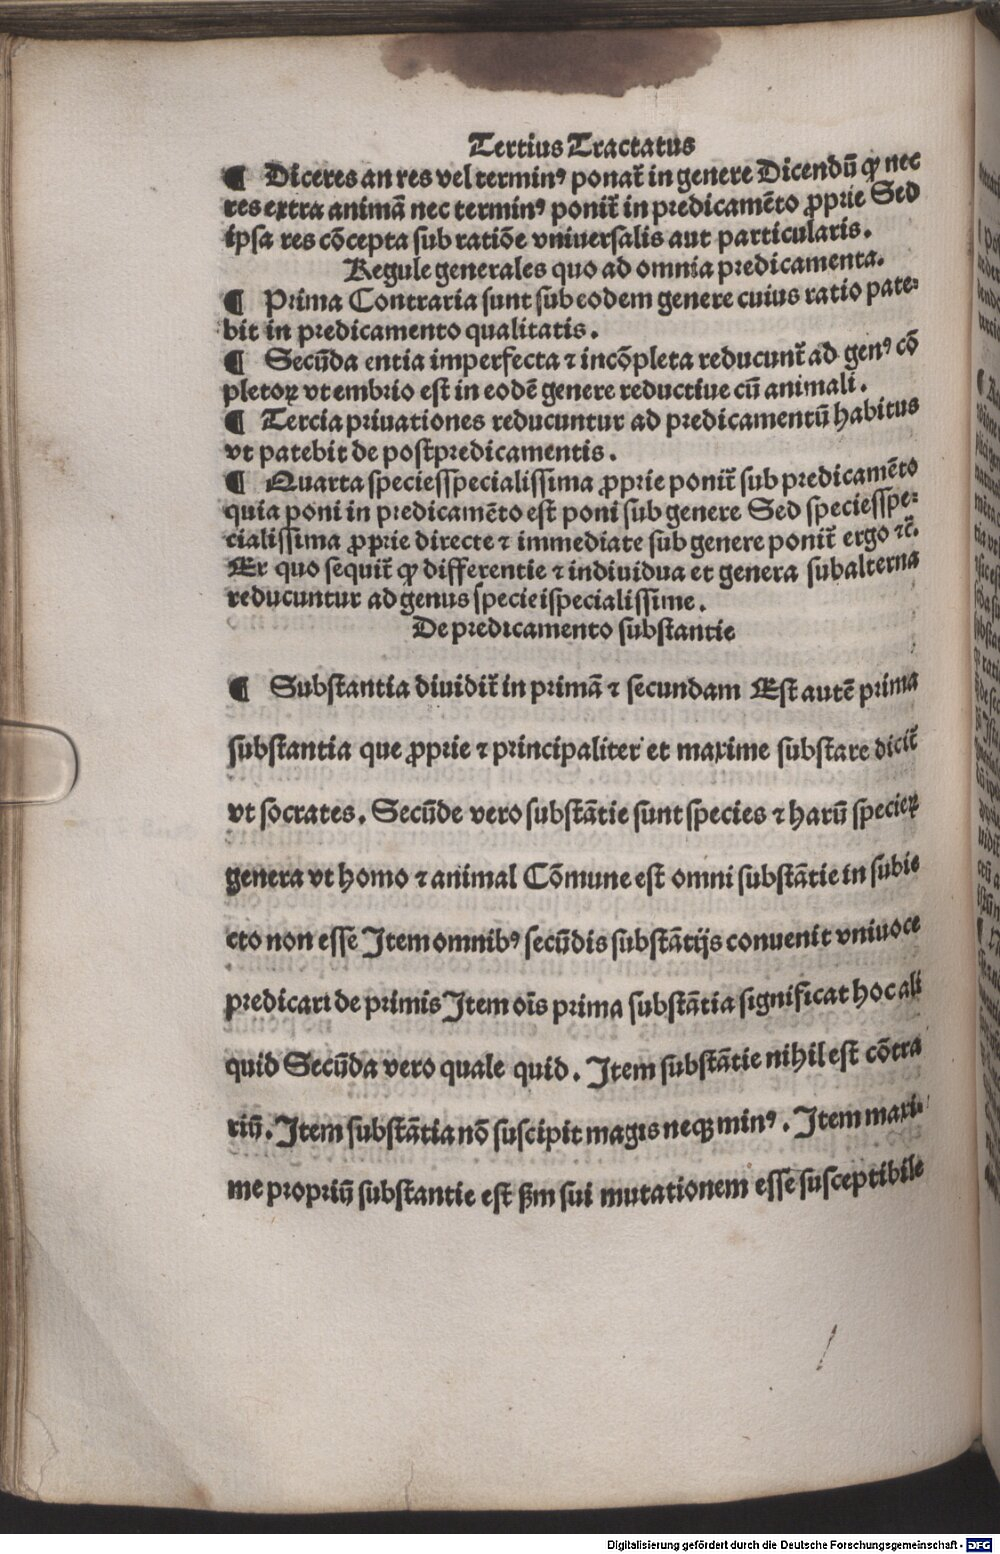 Tertius Tractatus
¶ Diceres an res vel terminꝰ ponat᷑ in genere Dicendū ꝙ nec
res extra animā nec terminꝰ ponit᷑ in predicamēto ꝓprie Sed
ipsa res cōcepta sub ratiōe vniuersalis aut particularis.
Regule generales quo ad omnia predicamenta.
¶ Prima Contraria sunt sub eodem genere cuius ratio pate⸗
bit in predicamento qualitatis.
¶ Secūda entia imperfecta ⁊ incōpleta reducunt᷑ ad genꝰ cō
pletoꝝ vt embrio est in eodē genere reductiue cū animali.
¶ Tercia priuationes reducuntur ad predicamentū habitus
vt patebit de postpredicamentis.
¶ Quarta speciesspecialissima ꝓprie ponit᷑ sub predicamēto
quia poni in predicamēto est poni sub genere Sed speciesspe⸗
cialissima ꝓprie directe ⁊ immediate sub genere ponit᷑ ergo ⁊c̄.
Ex quo sequit᷑ ꝙ differentie ⁊ indiuidua et genera subalterna
reducuntur ad genus specieispecialissime.
De predicamento substantie
¶ Substantia diuidit᷑ in primā ⁊ secundam Est autē prima
substantia que ꝓprie ⁊ principaliter et maxime substare dicit᷑
vt socrates. Secūde vero substātie sunt species ⁊ harū specieꝝ
genera vt homo ⁊ animal Cōmune est omni substātie in subie
cto non esse Item omnibꝰ secūdis substātijs conuenit vniuoce
predicari de primis Item oīs prima substātia significat hoc ali
quid Secūda vero quale quid. Item substātie nihil est cōtra
riū. Item substātia nō suscipit magis neqꝫ minꝰ. Item maxi⸗
me propriū substantie est ẜm sui mutationem esse susceptibile
Digitalisierung gefördert durch die Deutsche Forschungsgemeinschaft - DFG